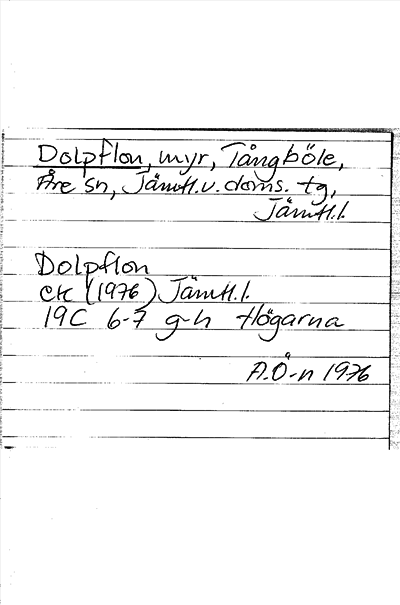 Dolpflon, myr, Tångböle,
Åre sn, Jämtl.v. doms. tg,
Jämtl.l.
Dolpflon
ek (1976) Jämtl.l.
19C 6-7 g-h Högarna
A.Ö-n 1976